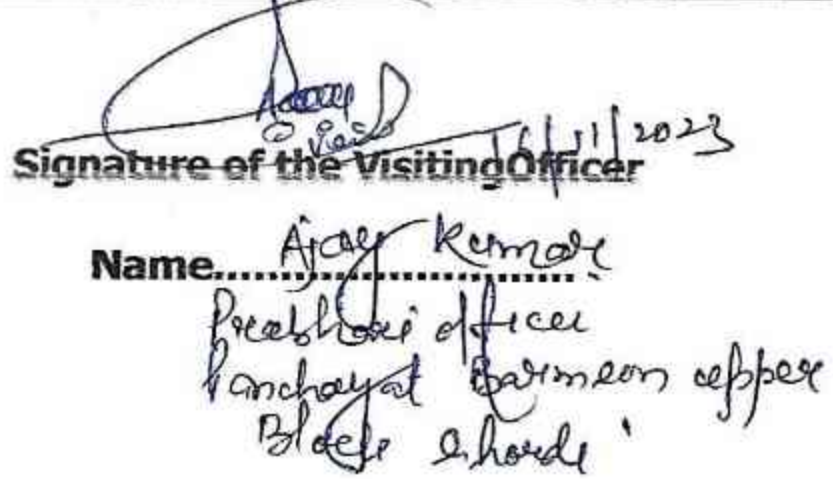 16/11/2023
Signature of the Visiting Officer
Name.................... Ajay Kumar
Prabhari officer
Panchayat Barmeen upper
Block